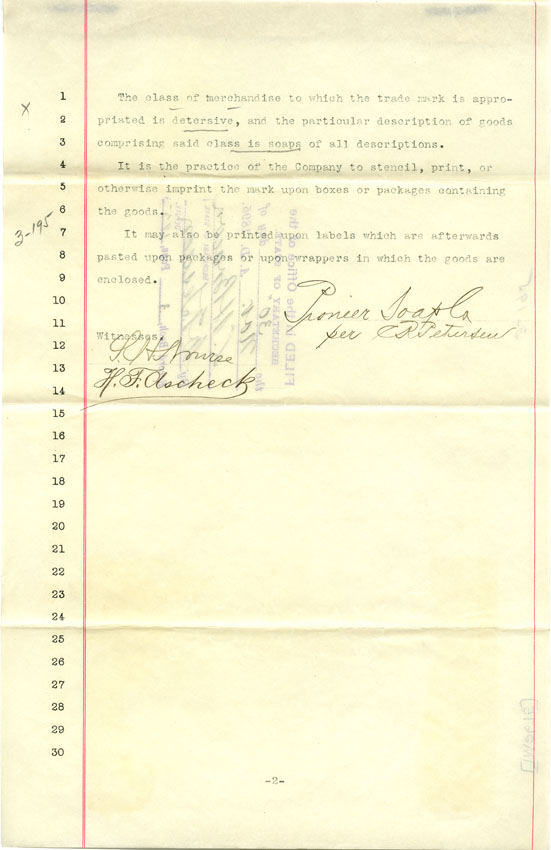 1 The class of merchandise to which the trade mark is appro-
x
2 priated is detersive, and the particular description of goods
3 comprising said class is soaps of all descriptions.
4 It is the practice of the Company to stencil, print, or
5 otherwise imprint the mark upon boxes or packages containing
6 the goods.
3-195
7 It may also be printed upon labels which are afterwards
8 pasted upon packages or upon wrappers in which the goods are
9 enclosed.
10 Pionier Soap Co
11 Witnesses. per C R Petersen
12
13 H. F. Ascheck
14
15
16
17
18
19
20
21
22
23
24
25
26
27
28
29
30
-2-
FILED in the Office of the
SECRETARY OF STATE
the 30 day of
Nov A.D. 189